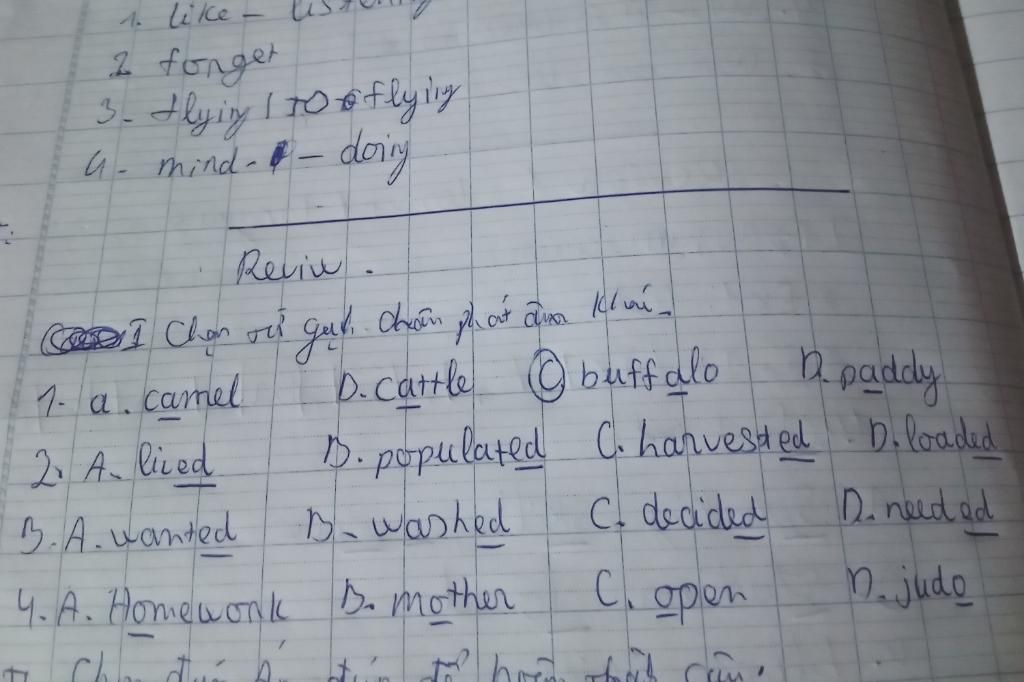 1. like - listening
2 fonger
3- flying / to flying
4- mind - - doing
Reviu.
I Chọn từ gạch chân phát âm khác
1. a. camel B. cattle C buffalo D. paddy
2. A. lived B. populated C. harvested D. loaded
3. A. wanted B. washed C. decided D. needed
4. A. Homework B. mother C. open D. judo
Chọn đáp án đúng để hoàn thành câu.